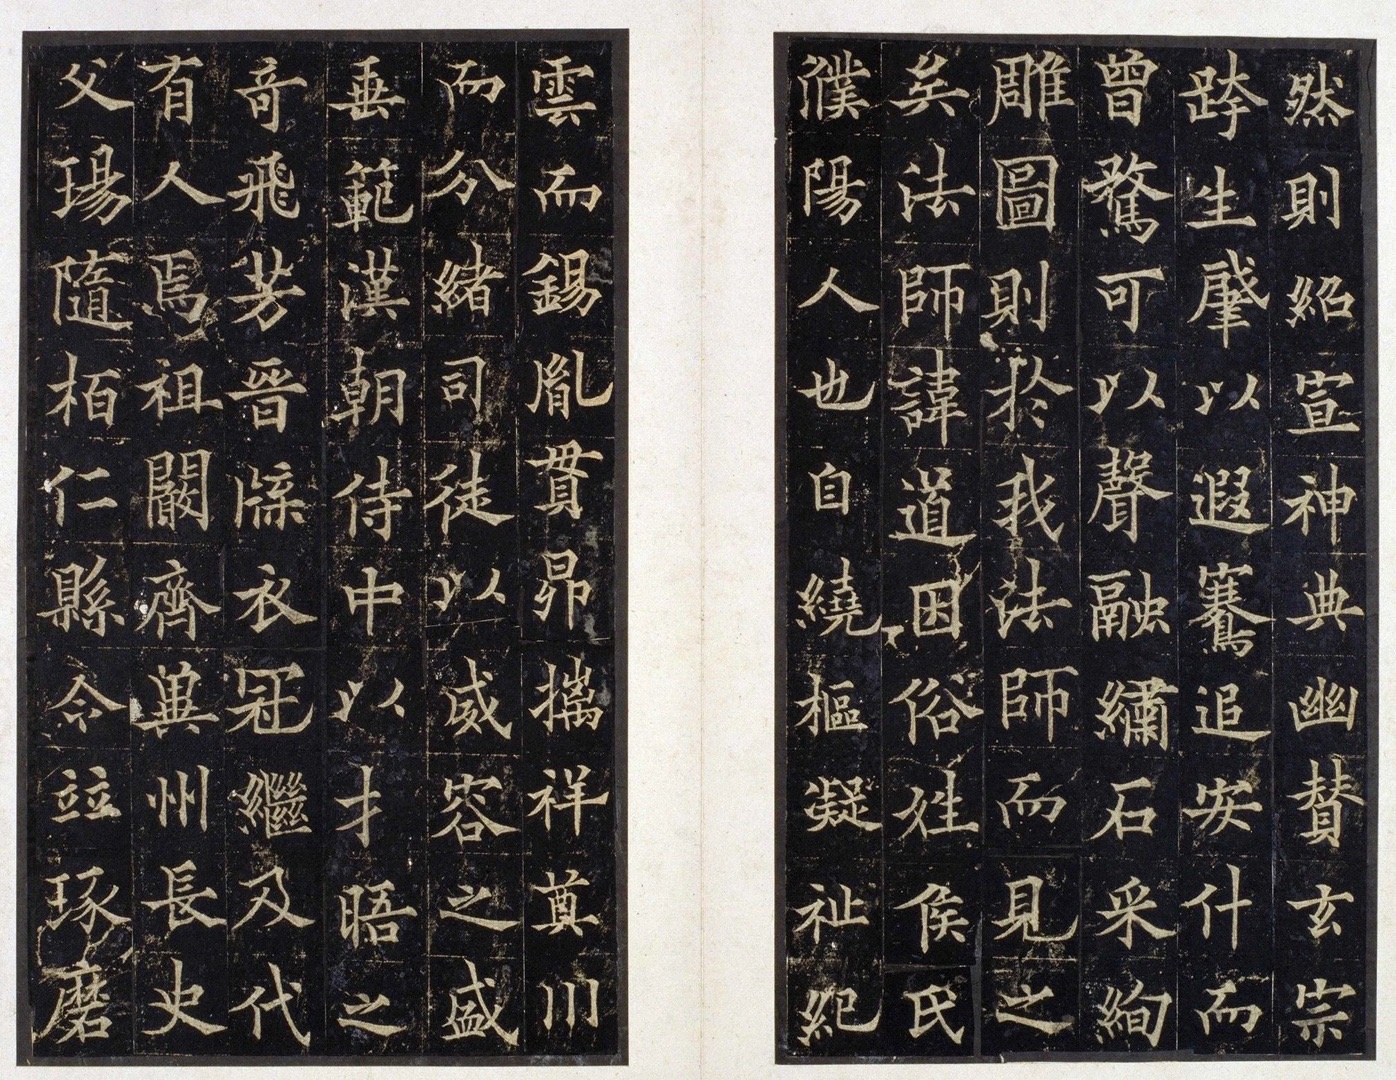 然則紹宣神典幽贊玄宗
跨生肇以遐騫追安什而
曾騖可以聲融繡石采絢
雕圖則於我法師而見之
矣法師諱道因俗姓侯氏
濮陽人也自繞樞凝祉紀
雲而錫胤貫昴摛祥奠川
而分緒司徒以威容之盛
垂範漢朝侍中以才晤之
奇飛芳晉牒衣冠繼及代
有人焉祖闞齊冀州長史
父瑒隨栢仁縣令竝琢磨